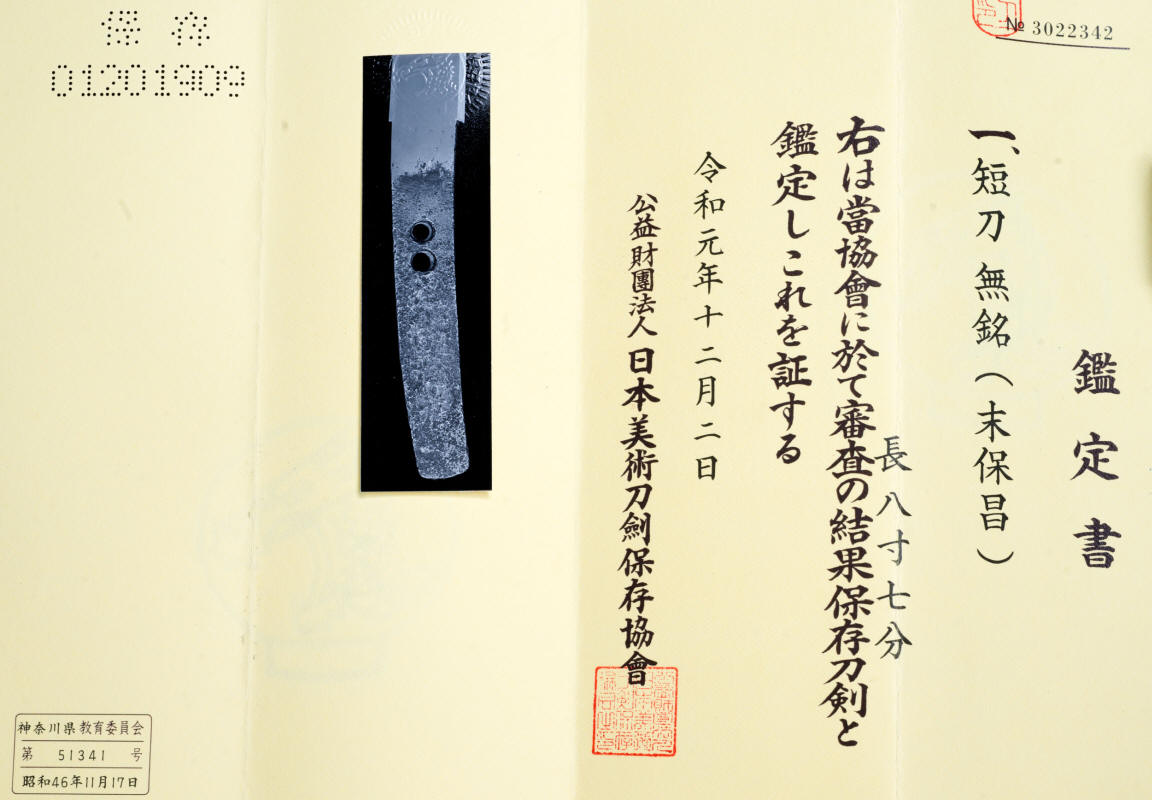 No 3022342
鑑定書
一、短刀 無銘(末保昌)
長八寸七分
右は當協會に於て審査の結果保存刀剣と
鑑定しこれを証する
令和元年十二月二日
公益財團法人 日本美術刀劍保存協會
保存
01201909
神奈川県教育委員会
第 51341 号
昭和46年11月17日